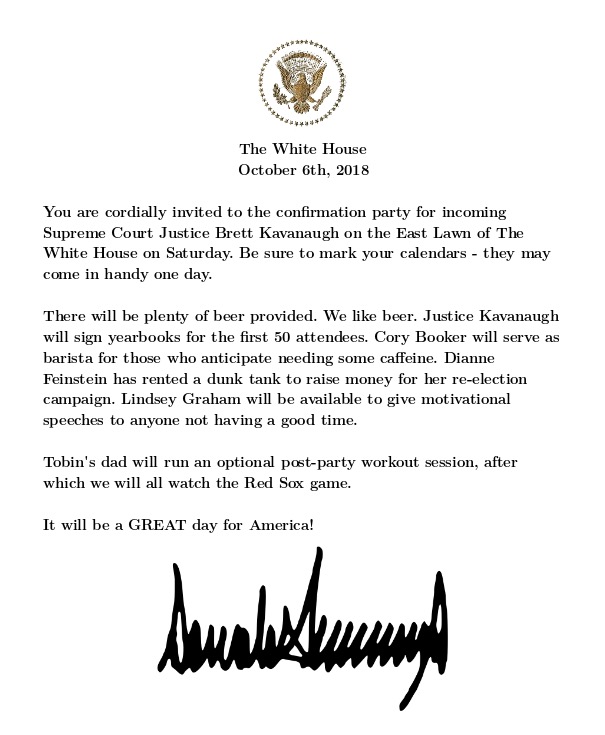 The White House
October 6th, 2018
You are cordially invited to the confirmation party for incoming
Supreme Court Justice Brett Kavanaugh on the East Lawn of The
White House on Saturday. Be sure to mark your calendars - they may
come in handy one day.
There will be plenty of beer provided. We like beer. Justice Kavanaugh
will sign yearbooks for the first 50 attendees. Cory Booker will serve as
barista for those who anticipate needing some caffeine. Dianne
Feinstein has rented a dunk tank to raise money for her re-election
campaign. Lindsey Graham will be available to give motivational
speeches to anyone not having a good time.
Tobin's dad will run an optional post-party workout session, after
which we will all watch the Red Sox game.
It will be a GREAT day for America!